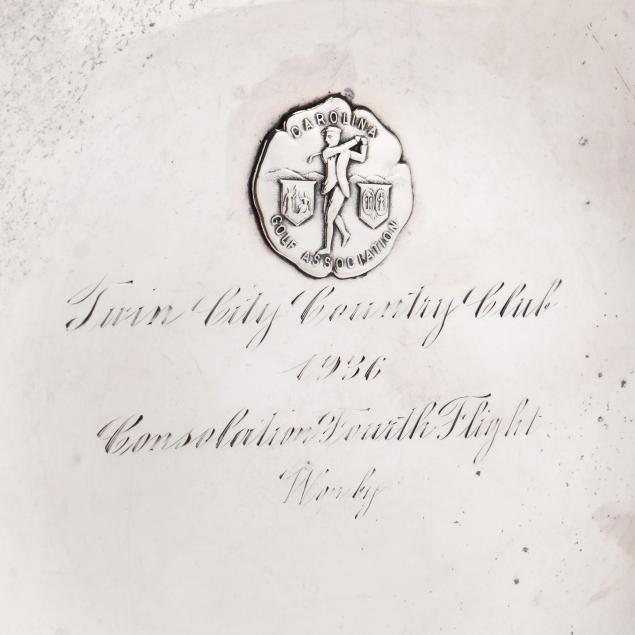 CAROLINA
GOLF ASSOCIATION
Twin City Country Club
1936
Consolation Fourth Flight
Won by